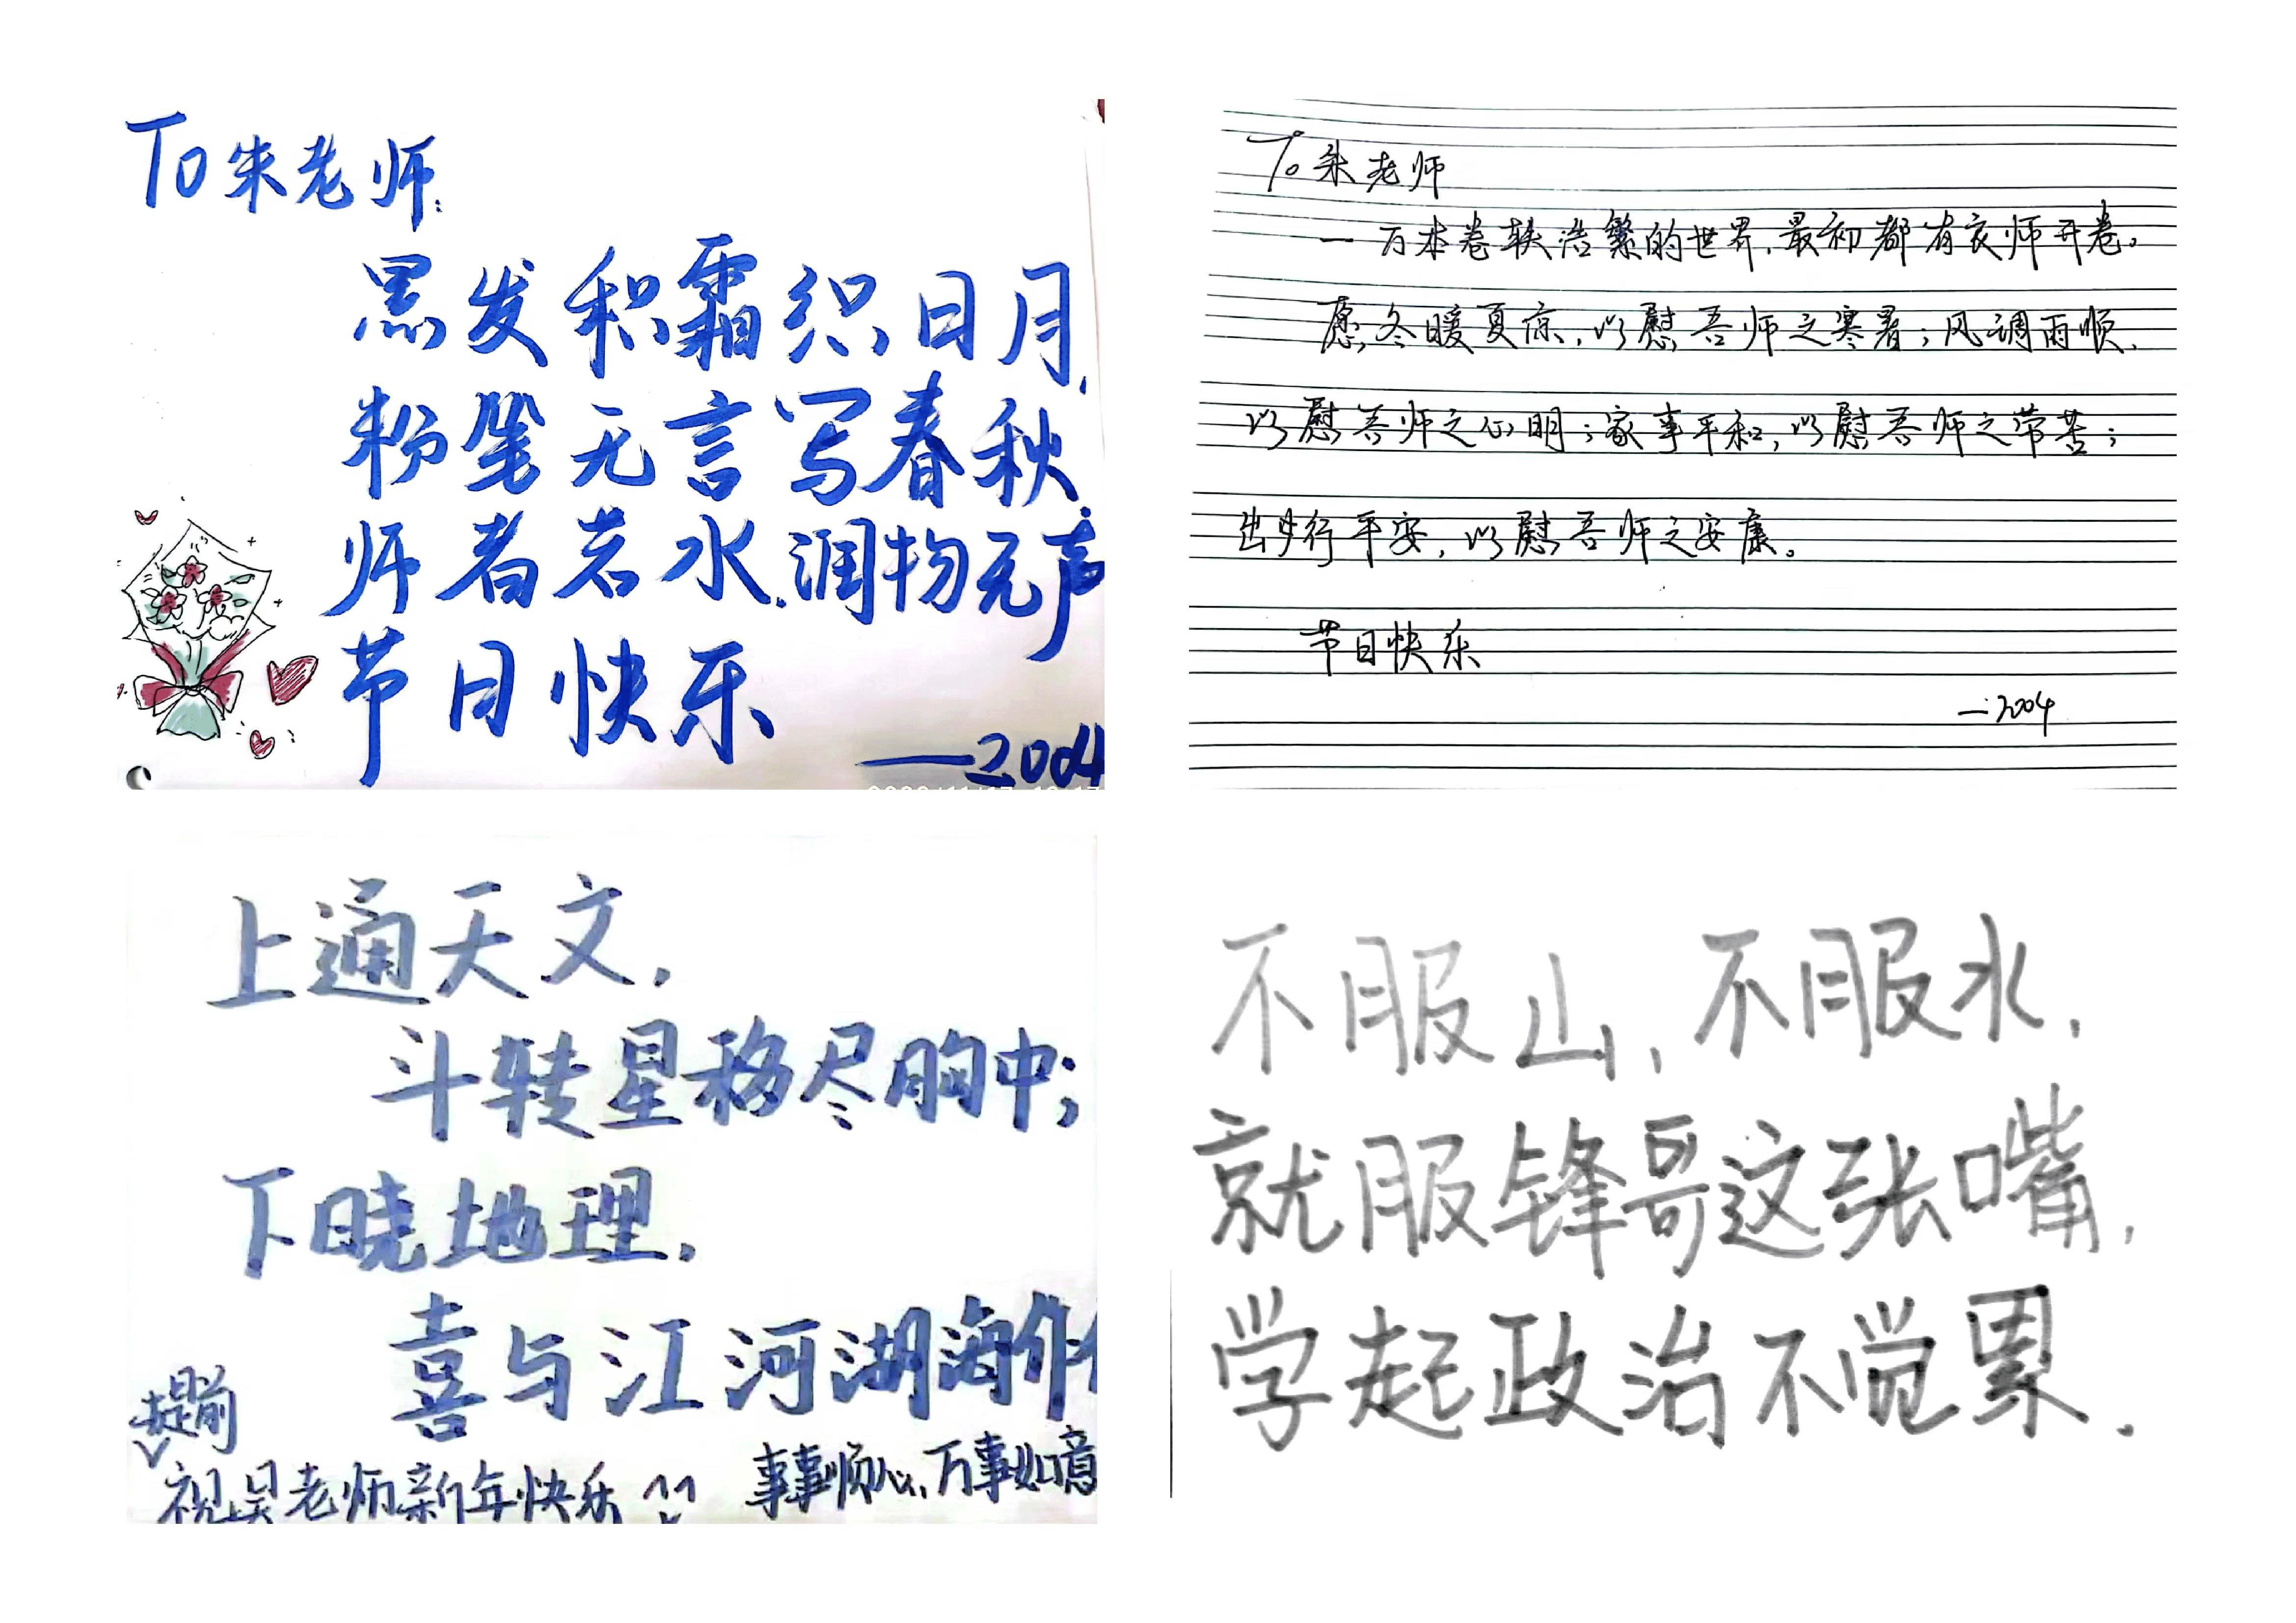 To朱老师:
黑发积霜织日月,
粉笔无言写春秋.
师者若水.润物无声
节日快乐
——2004
To 朱老师
一万本卷轶浩繁的世界,最初都有夜师开卷。
愿冬暖夏凉,以慰吾师之寒暑;风调雨顺,
以慰吾师之心明;家事平和,以慰吾师之常苦;
出步行平安,以慰吾师之安康。
节日快乐
—2004
上通天文,
斗转星移尽胸中;
下晓地理.
喜与江河湖海作
提前
祝吴老师新年快乐 ^^ 事事顺心,万事如意
不服山,不服水,
就服锋哥这张嘴,
学起政治不觉累.